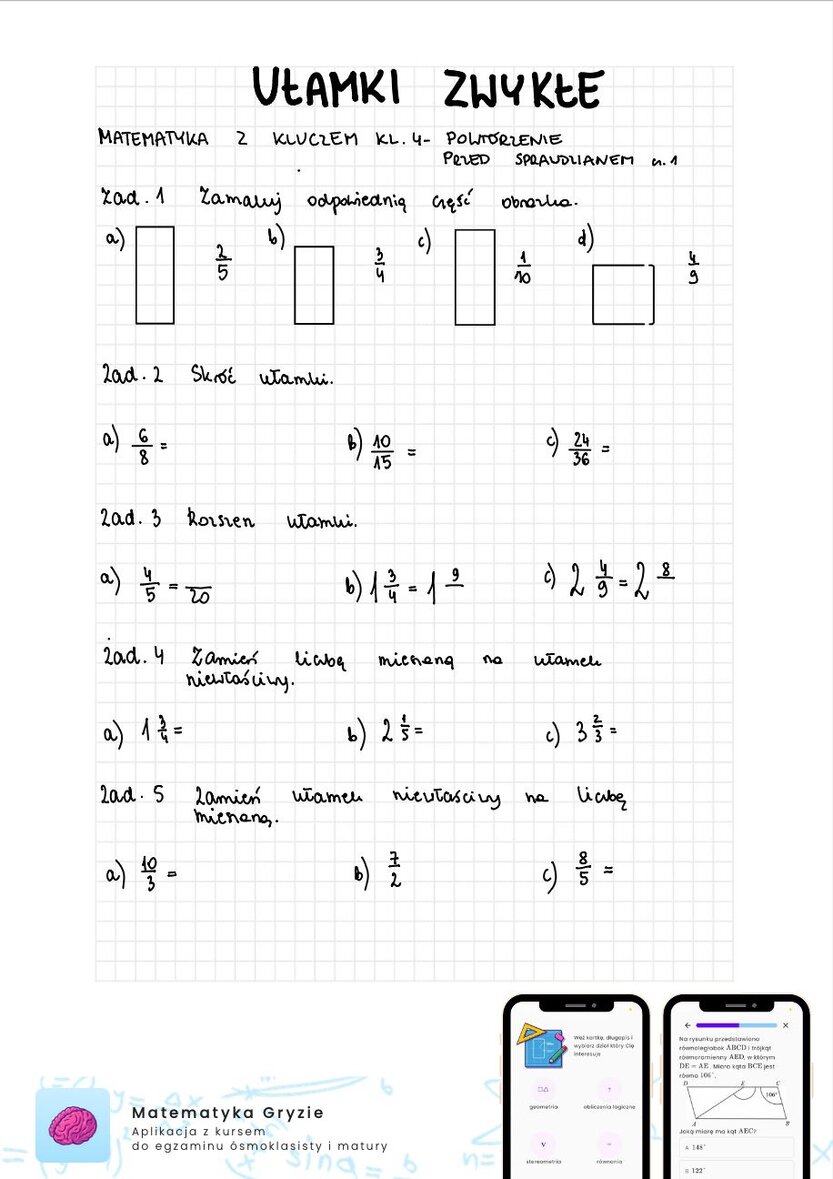 UŁAMKI ZWYKŁE
MATEMATYKA Z KLUCZEM KL. 4- POWTÓRZENIE
PRZED SPRAWDZIANEM n. 1
Zad. 1 Zamaluj odpowiednią część obrazka.
a) 2/5 b) 3/4 c) 1/10 d) 4/9
Zad. 2 Skróć ułamki.
a) 6/8 = b) 10/15 = c) 24/36 =
Zad. 3 Rozszerz ułamki.
a) 4/5 = /20 b) 1 3/4 = 1 9/ c) 2 4/9 = 2 8/
Zad. 4 Zamień liczbę mieszaną na ułamek
niewłaściwy.
a) 1 3/4 = b) 2 1/5 = c) 3 2/3 =
Zad. 5 Zamień ułamek niewłaściwy na liczbę
mieszaną.
a) 10/3 = b) 7/2 c) 8/5 =
Matematyka Gryzie
Aplikacja z kursem
do egzaminu ósmoklasisty i matury
Weź kartkę, długopis i
wybierz dział który Cię
interesuje
geometria
obliczenia logiczne
stereometria
równania
Na rysunku przedstawiono
równoległobok ABCD i trójkąt
równoramienny AED, w którym
DE = AE. Miara kąta BCE jest
równa 106°.
D E C
106°
A B
Jaką miarę ma kąt AEC?
A 148°
B 122°